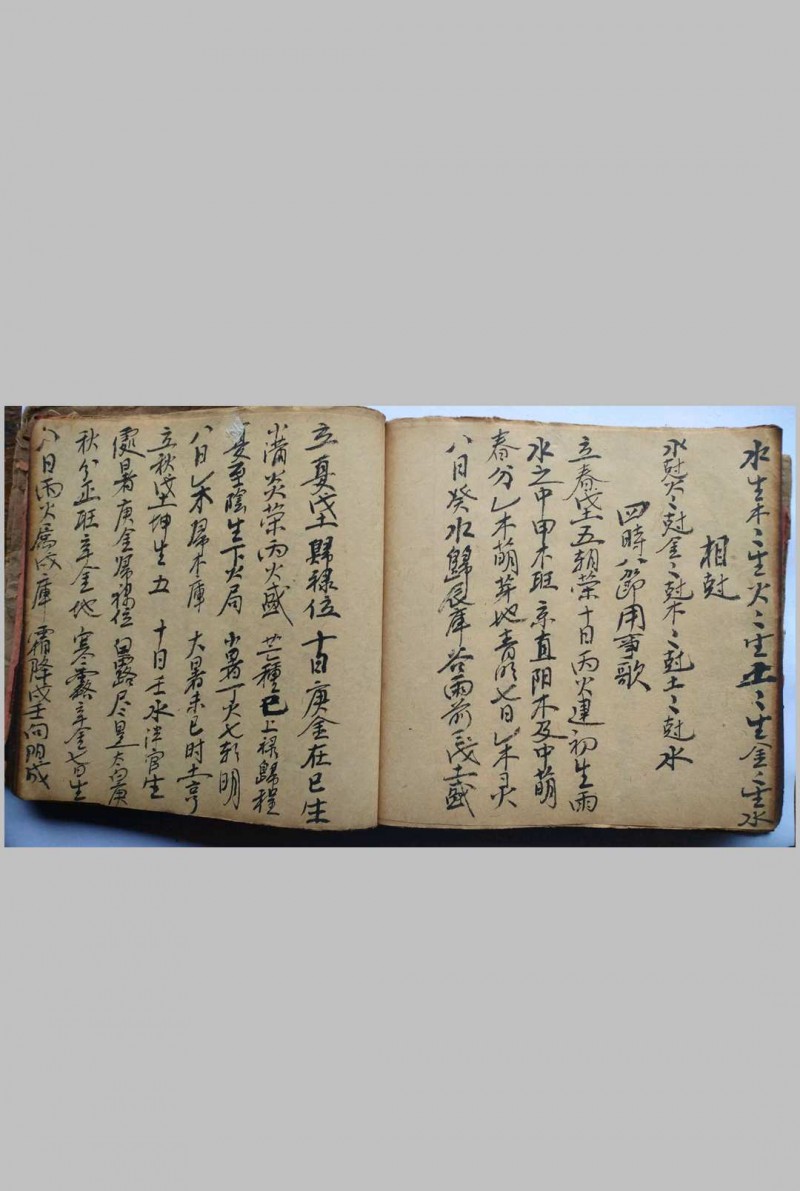 水生木〻生火〻生土〻生金〻生水
相尅
水尅火〻尅金〻尅木〻尅土〻尅水
四時八節用事歌
立春戊土五朝榮十日丙火建初生雨
水之中甲木旺京直阳木及中萌
春分乙木萌芽地青明七日乙木灵
八日癸水歸辰庫谷雨前戊土盛
立夏戊土歸禄位十日庚金在巳生
小满炎荣丙火盛芒種己上禄歸程
夏至陰生下火局小暑丁火七朝明
八日乙木歸木庫大暑未已时土亨
立秋戊土坤生五十日壬水法官生
處暑庚金歸禄位白露尽是太白庚
秋分正旺辛金地寒露辛金七日生
八日丙火属戌庫霜降戊土向阳成